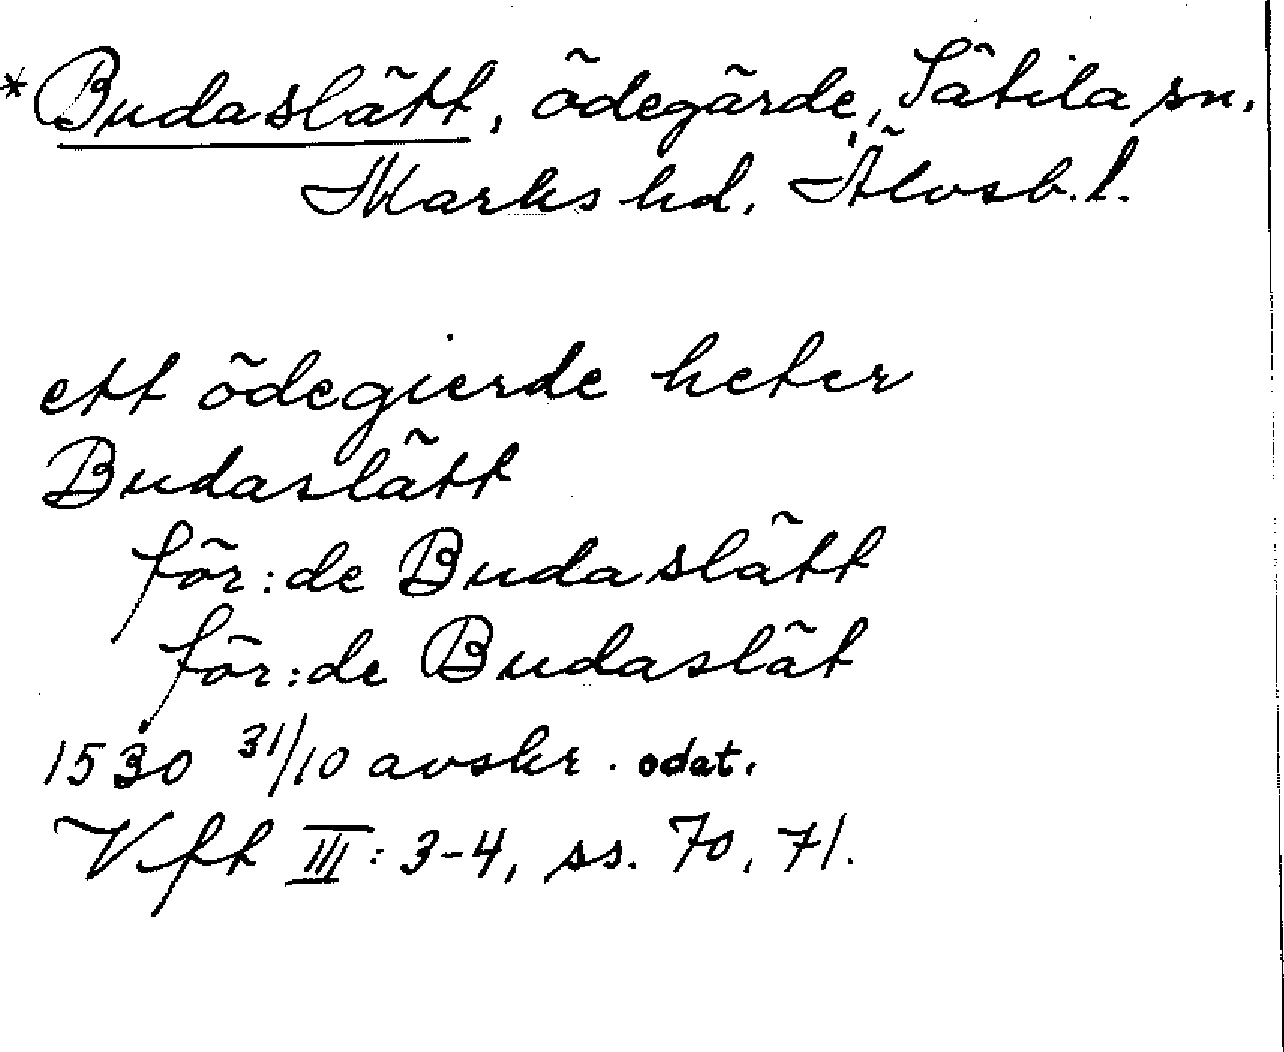 *Budaslätt, ödegärde, Sätila sn.
Marks hd, Älvsb. l.
ett ödegierde heter
Budaslätt
för:de Budaslätt
för:de Budaslät
1530 31/10 avskr. odat.
Vfft III: 3-4, ss. 70, 71.